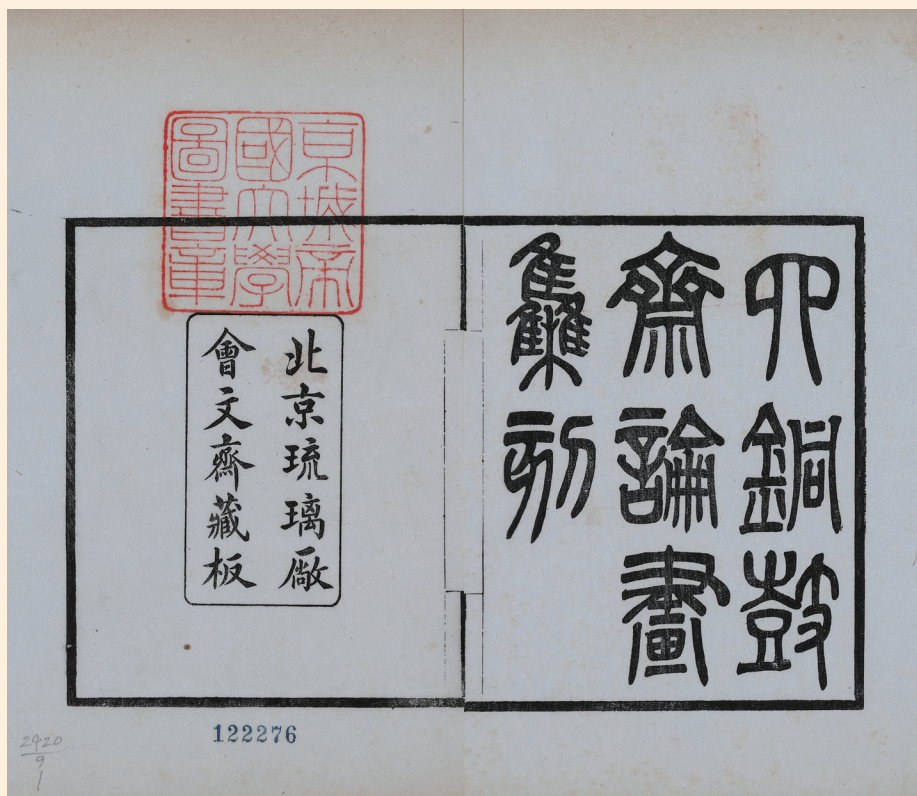 四銅鼓
齋論畫
集刻
京城帝
國大學
圖書章
北京琉璃厰
會文齋藏板
122276
2420
9
1